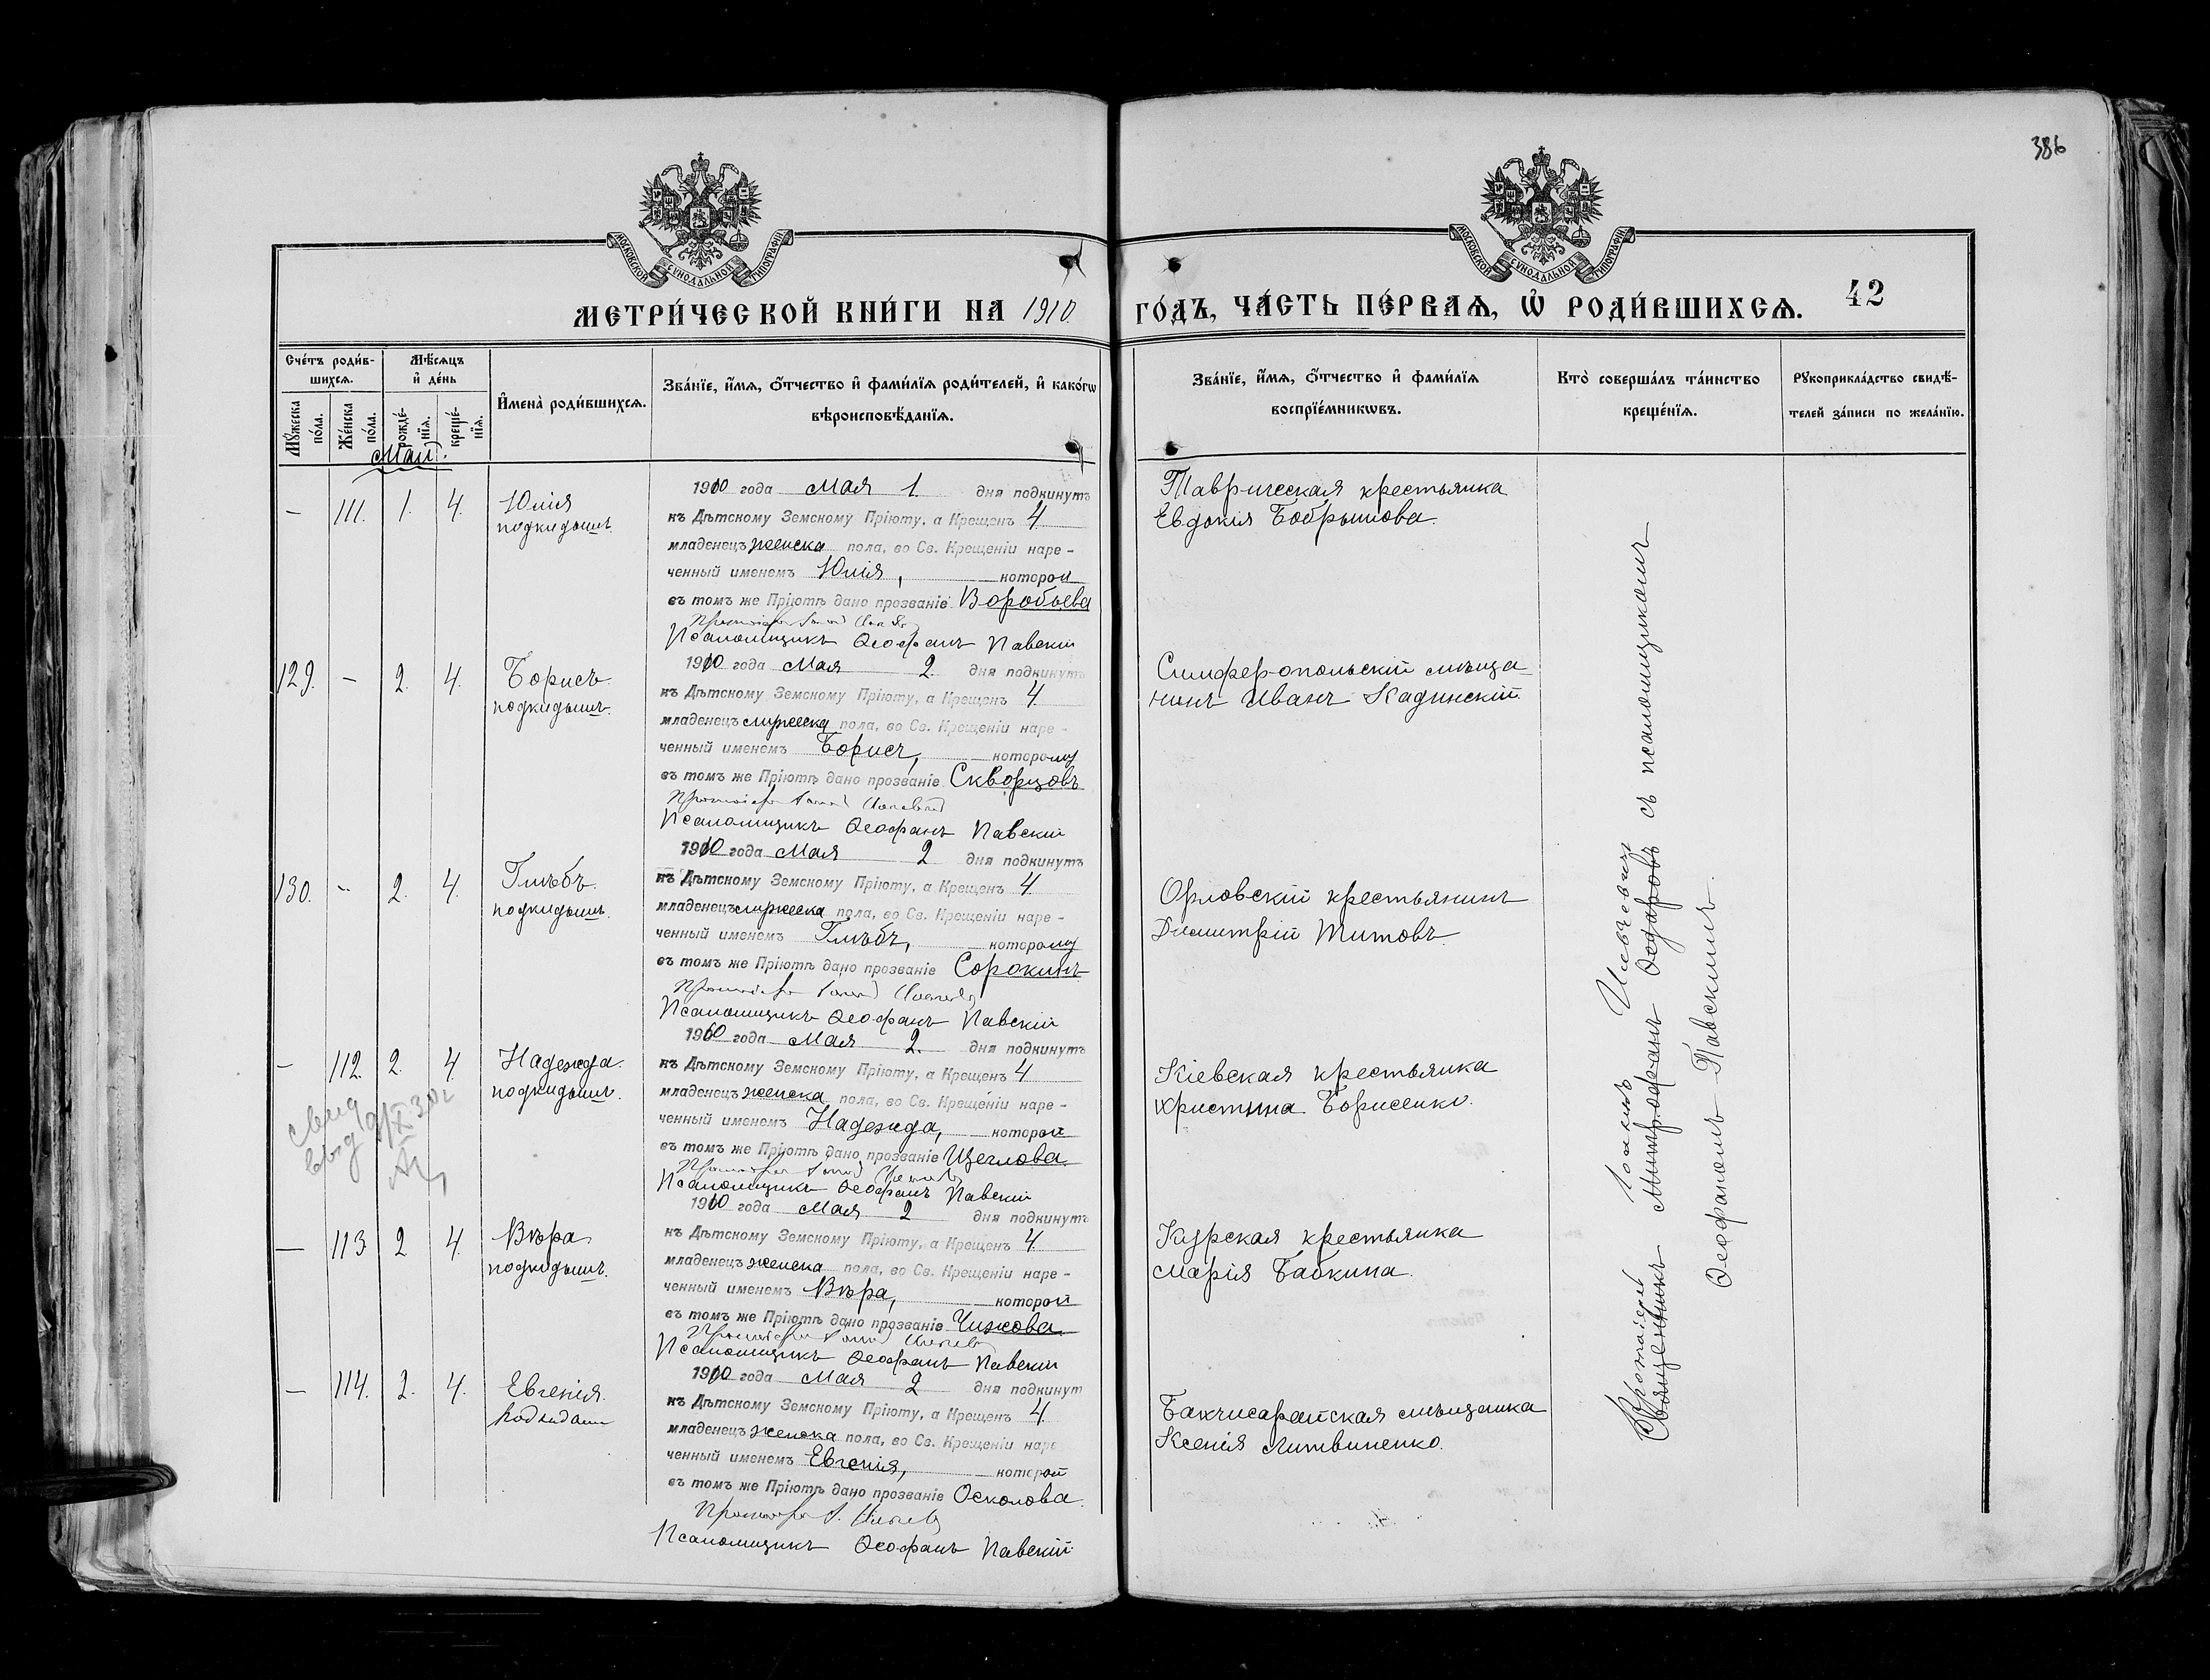 386
МОСКОВСКОЙ СѴНОДАЛЬНОЙ ТИПОГРАФІИ
МОСКОВСКОЙ СѴНОДАЛЬНОЙ ТИПОГРАФІИ
МЕТРИ́ЧЕСКОЙ КНИ́ГИ НА 1910. ГО́ДЪ, ЧА́СТЬ ПЕ́РВАѦ, Ѽ РОДИ́ВШИХСѦ. 42
Сче́тъ роди́в-
шихсѧ.
Мꙋ́жеска
по́ла.
Же́нска
по́ла.
Мѣ́сѧцъ
и҆ де́нь
рожде́-
нїѧ.
креще́-
нїѧ.
И҆мена̀ роди́вшихсѧ.
Зва́нїе, и҆́мѧ, ѻ҆́тчество и҆ фами́лїѧ роди́телей, и҆ како́гѡ
вѣроисповѣ́данїѧ.
Зва́нїе, и҆́мѧ, ѻ҆́тчество и҆ фами́лїѧ
воспрїе́мникѡвъ.
Кто̀ соверша́лъ та́инство
креще́нїѧ.
Рꙋкоприкла́дство свидѣ́-
телей за́писи по жела́нїю.
Май.
— 111. 1. 4. Юлія
подкидышъ.
1910 года Мая 1. дня подкинутъ
къ Дѣтскому Земскому Пріюту, а Крещенъ 4.
младенецъ женска пола, во Св. Крещеніи наре-
ченный именемъ Юлія, которой
въ томъ же Пріютѣ дано прозваніе Воробьева
Псаломщикъ Ѳеофанъ Павскій
Таврическая крестьянка
Евдокія Бобрышова.
129. — 2. 4. Борисъ.
подкидышъ.
1910 года Мая 2. дня подкинутъ
къ Дѣтскому Земскому Пріюту, а Крещенъ 4.
младенецъ мужеска пола, во Св. Крещеніи наре-
ченный именемъ Борисъ, которому
въ томъ же Пріютѣ дано прозваніе Скворцовъ
Псаломщикъ Ѳеофанъ Павскій
Симферопольскій мѣща-
нинъ Иванъ Кадинскій.
130. — 2. 4. Глѣбъ.
подкидышъ.
1910 года Мая 2 дня подкинутъ
къ Дѣтскому Земскому Пріюту, а Крещенъ 4.
младенецъ мужеска пола, во Св. Крещеніи наре-
ченный именемъ Глѣбъ, которому
въ томъ же Пріютѣ дано прозваніе Сорокинъ
Псаломщикъ Ѳеофанъ Павскій
Орловскій крестьянинъ
Димитрій Титовъ.
— 112. 2. 4. Надежда.
подкидышъ.
1910 года Мая 2. дня подкинутъ
къ Дѣтскому Земскому Пріюту, а Крещенъ 4
младенецъ женска пола, во Св. Крещеніи наре-
ченный именемъ Надежда, которой
въ томъ же Пріютѣ дано прозваніе Щеглова.
Псаломщикъ Ѳеофанъ Павскій
Кіевская крестьянка
Христина Борисенко.
— 113 2 4. Вѣра
подкидышъ.
1910 года Мая 2 дня подкинутъ
къ Дѣтскому Земскому Пріюту, а Крещенъ 4.
младенецъ женска пола, во Св. Крещеніи наре-
ченный именемъ Вѣра, которой
въ томъ же Пріютѣ дано прозваніе Чижова.
Псаломщикъ Ѳеофанъ Павскій
Курская крестьянка
Марія Бабкина.
— 114. 2. 4. Евгенія.
подкидыш
1910 года Мая 2 дня подкинут
къ Дѣтскому Земскому Пріюту, а Крещенъ 4.
младенецъ женска пола, во Св. Крещеніи наре
ченный именемъ Евгенія, которой
въ томъ же Пріютѣ дано прозваніе Осколова.
Псаломщикъ Ѳеофанъ Павскій.
Бахчисарайская мѣщанка
Ксенія Литвиненко.
Протоіерей
Священникъ Митрофанъ Ѳедоровъ съ псаломщикомъ
Ѳеофаномъ Павскимъ.